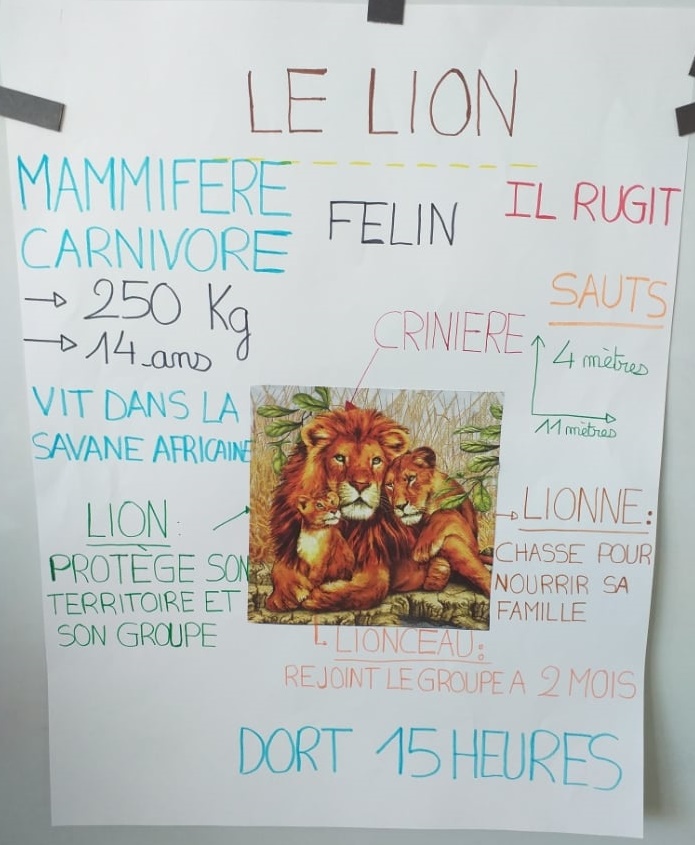 LE LION
MAMMIFERE
CARNIVORE
FELIN
IL RUGIT
→ 250 Kg
→ 14 ans
SAUTS
4 mètres
11 mètres
CRINIERE
VIT DANS LA
SAVANE AFRICAINE
LION:
PROTÈGE SON
TERRITOIRE ET
SON GROUPE
LIONNE:
CHASSE POUR
NOURRIR SA
FAMILLE
LIONCEAU:
REJOINT LE GROUPE A 2 MOIS
DORT 15 HEURES